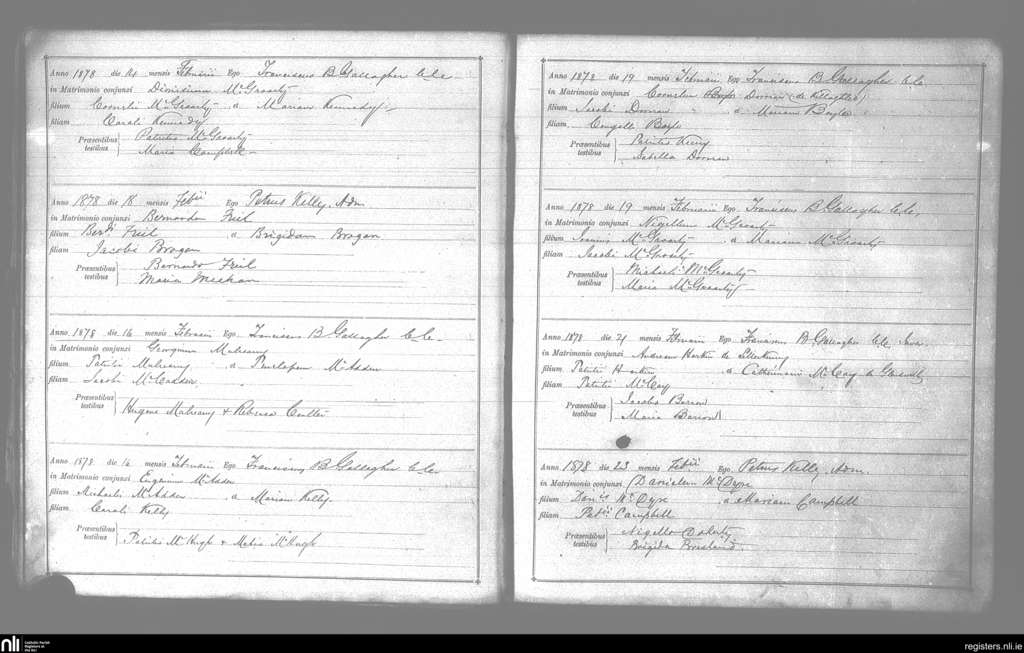 Anno 1878 die 14 mensis Februarii Ego Franciscus B Gallagher C.C.
in Matrimonio conjunxi Dionisium McGroarty
filium Cornelii McGroarty & Mariam Kennedy
filiam Caroli Kennedy
Præsentibus testibus Patritio McGroarty
Maria Campbell
Anno 1878 die 18 mensis Febii Ego Petrus Kelly, Adm.
in Matrimonio conjunxi Bernardum Friil
filium Berdi Friil & Brigidam Brogan
filiam Jacobi Brogan
Præsentibus testibus Bernardo Friil
Maria Meehan
Anno 1878 die 16 mensis Februarii Ego Franciscus B Gallagher C.C.
in Matrimonio conjunxi Georgium
filium Patritii & McFadden
filiam Jacobi McFadden
Præsentibus testibus Hugone & Rebecca
Anno 1878 die 16 mensis Februarii Ego Franciscus B Gallagher C.C.
in Matrimonio conjunxi Eugenium McFadden
filium Michaelis McFadden & Mariam Kelly
filiam Caroli Kelly
Præsentibus testibus Patritio McHugh & Maria McHugh
Anno 1878 die 19 mensis Februarii Ego Franciscus B Gallagher C.C.
in Matrimonio conjunxi Cornelium
filium Jacobi & Mariam Boyle
filiam Boyle
Præsentibus testibus Patritio
Isabella
Anno 1878 die 19 mensis Februarii Ego Franciscus B Gallagher C.C.
in Matrimonio conjunxi Nigellum McGroarty
filium McGroarty & Mariam McGroarty
filiam Jacobi McGroarty
Præsentibus testibus Michaeli McGroarty
Maria McGroarty
Anno 1878 die 21 mensis Februarii Ego Franciscus B Gallagher C.C.
in Matrimonio conjunxi Andream Harkin de
filium Patritii Harkin & McCay de
filiam Patritii McCay
Præsentibus testibus Jacobo
Maria
Anno 1878 die 23 mensis Febii Ego Petrus Kelly, Adm.
in Matrimonio conjunxi Danielem McDyre
filium Danis McDyre & Mariam Campbell
filiam Patii Campbell
Præsentibus testibus Nigello Doherty
Brigida Bresland
nli Catholic Parish Registers at the NLI
registers.nli.ie